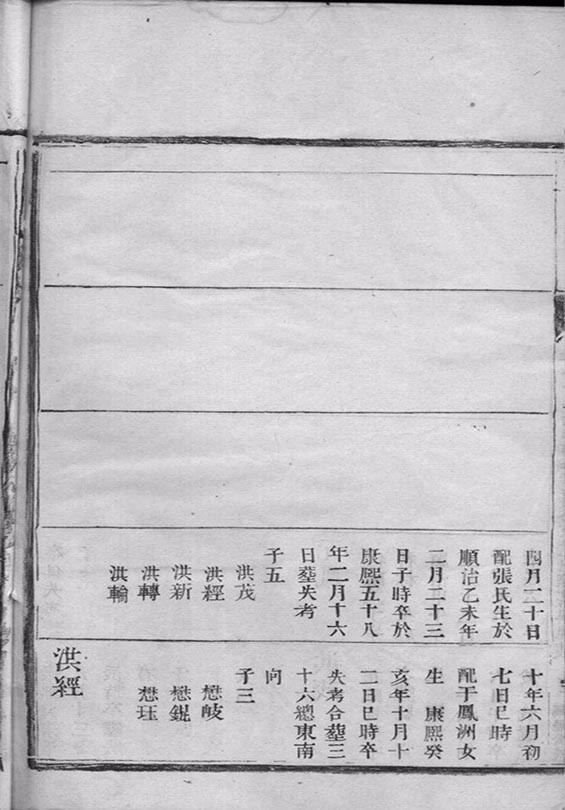 四月二十日
配張氏生於
順治乙未年
二月二十三
日子時卒於
康熙五十八
年二月十六
日塟失考
子五
洪茂
洪經
洪新
洪轉
洪輪
十年六月初
七日巳時
配于鳳洲女
生 康熙癸
亥年十月十
二日巳時卒
失考合塟三
十六總東南
向
子三
懋岐
懋錕
懋珏
洪經